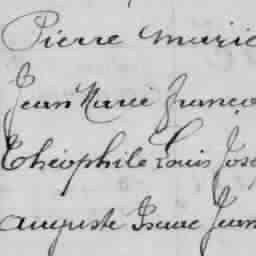 Pierre Marie
Jean Marie Franço
Théophile Louis Jose
Auguste Isaac Jean